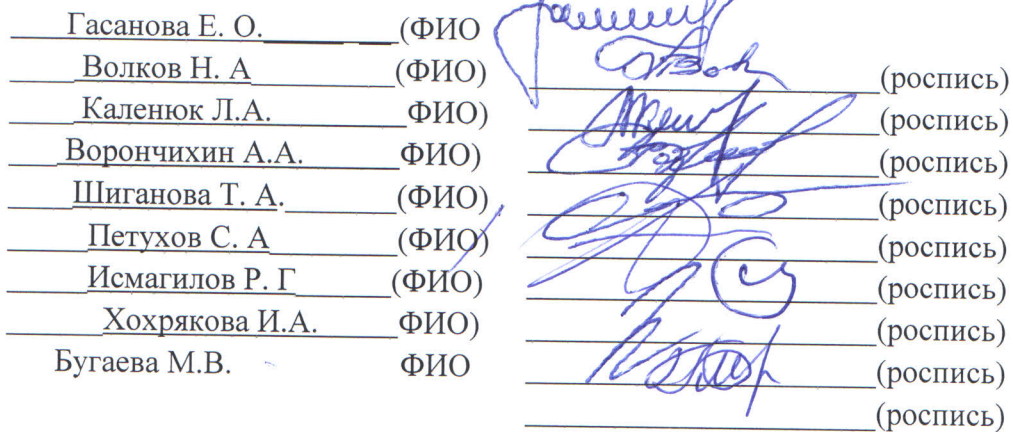 Гасанова Е. О. (ФИО
Волков Н. А (ФИО) (роспись)
Каленюк Л.А. ФИО) (роспись)
Ворончихин А.А. ФИО) (роспись)
Шиганова Т. А. (ФИО) (роспись)
Петухов С. А (ФИО) (роспись)
Исмагилов Р. Г (ФИО) (роспись)
Хохрякова И.А. ФИО) (роспись)
Бугаева М.В. ФИО (роспись)
(роспись)